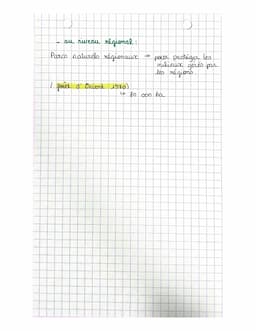 - au niveau régional :
Parcs naturels régionaux → pour protéger les
milieux gérés par
les régions
( forêt d'Orient 1970)
↳ 80 000 ha